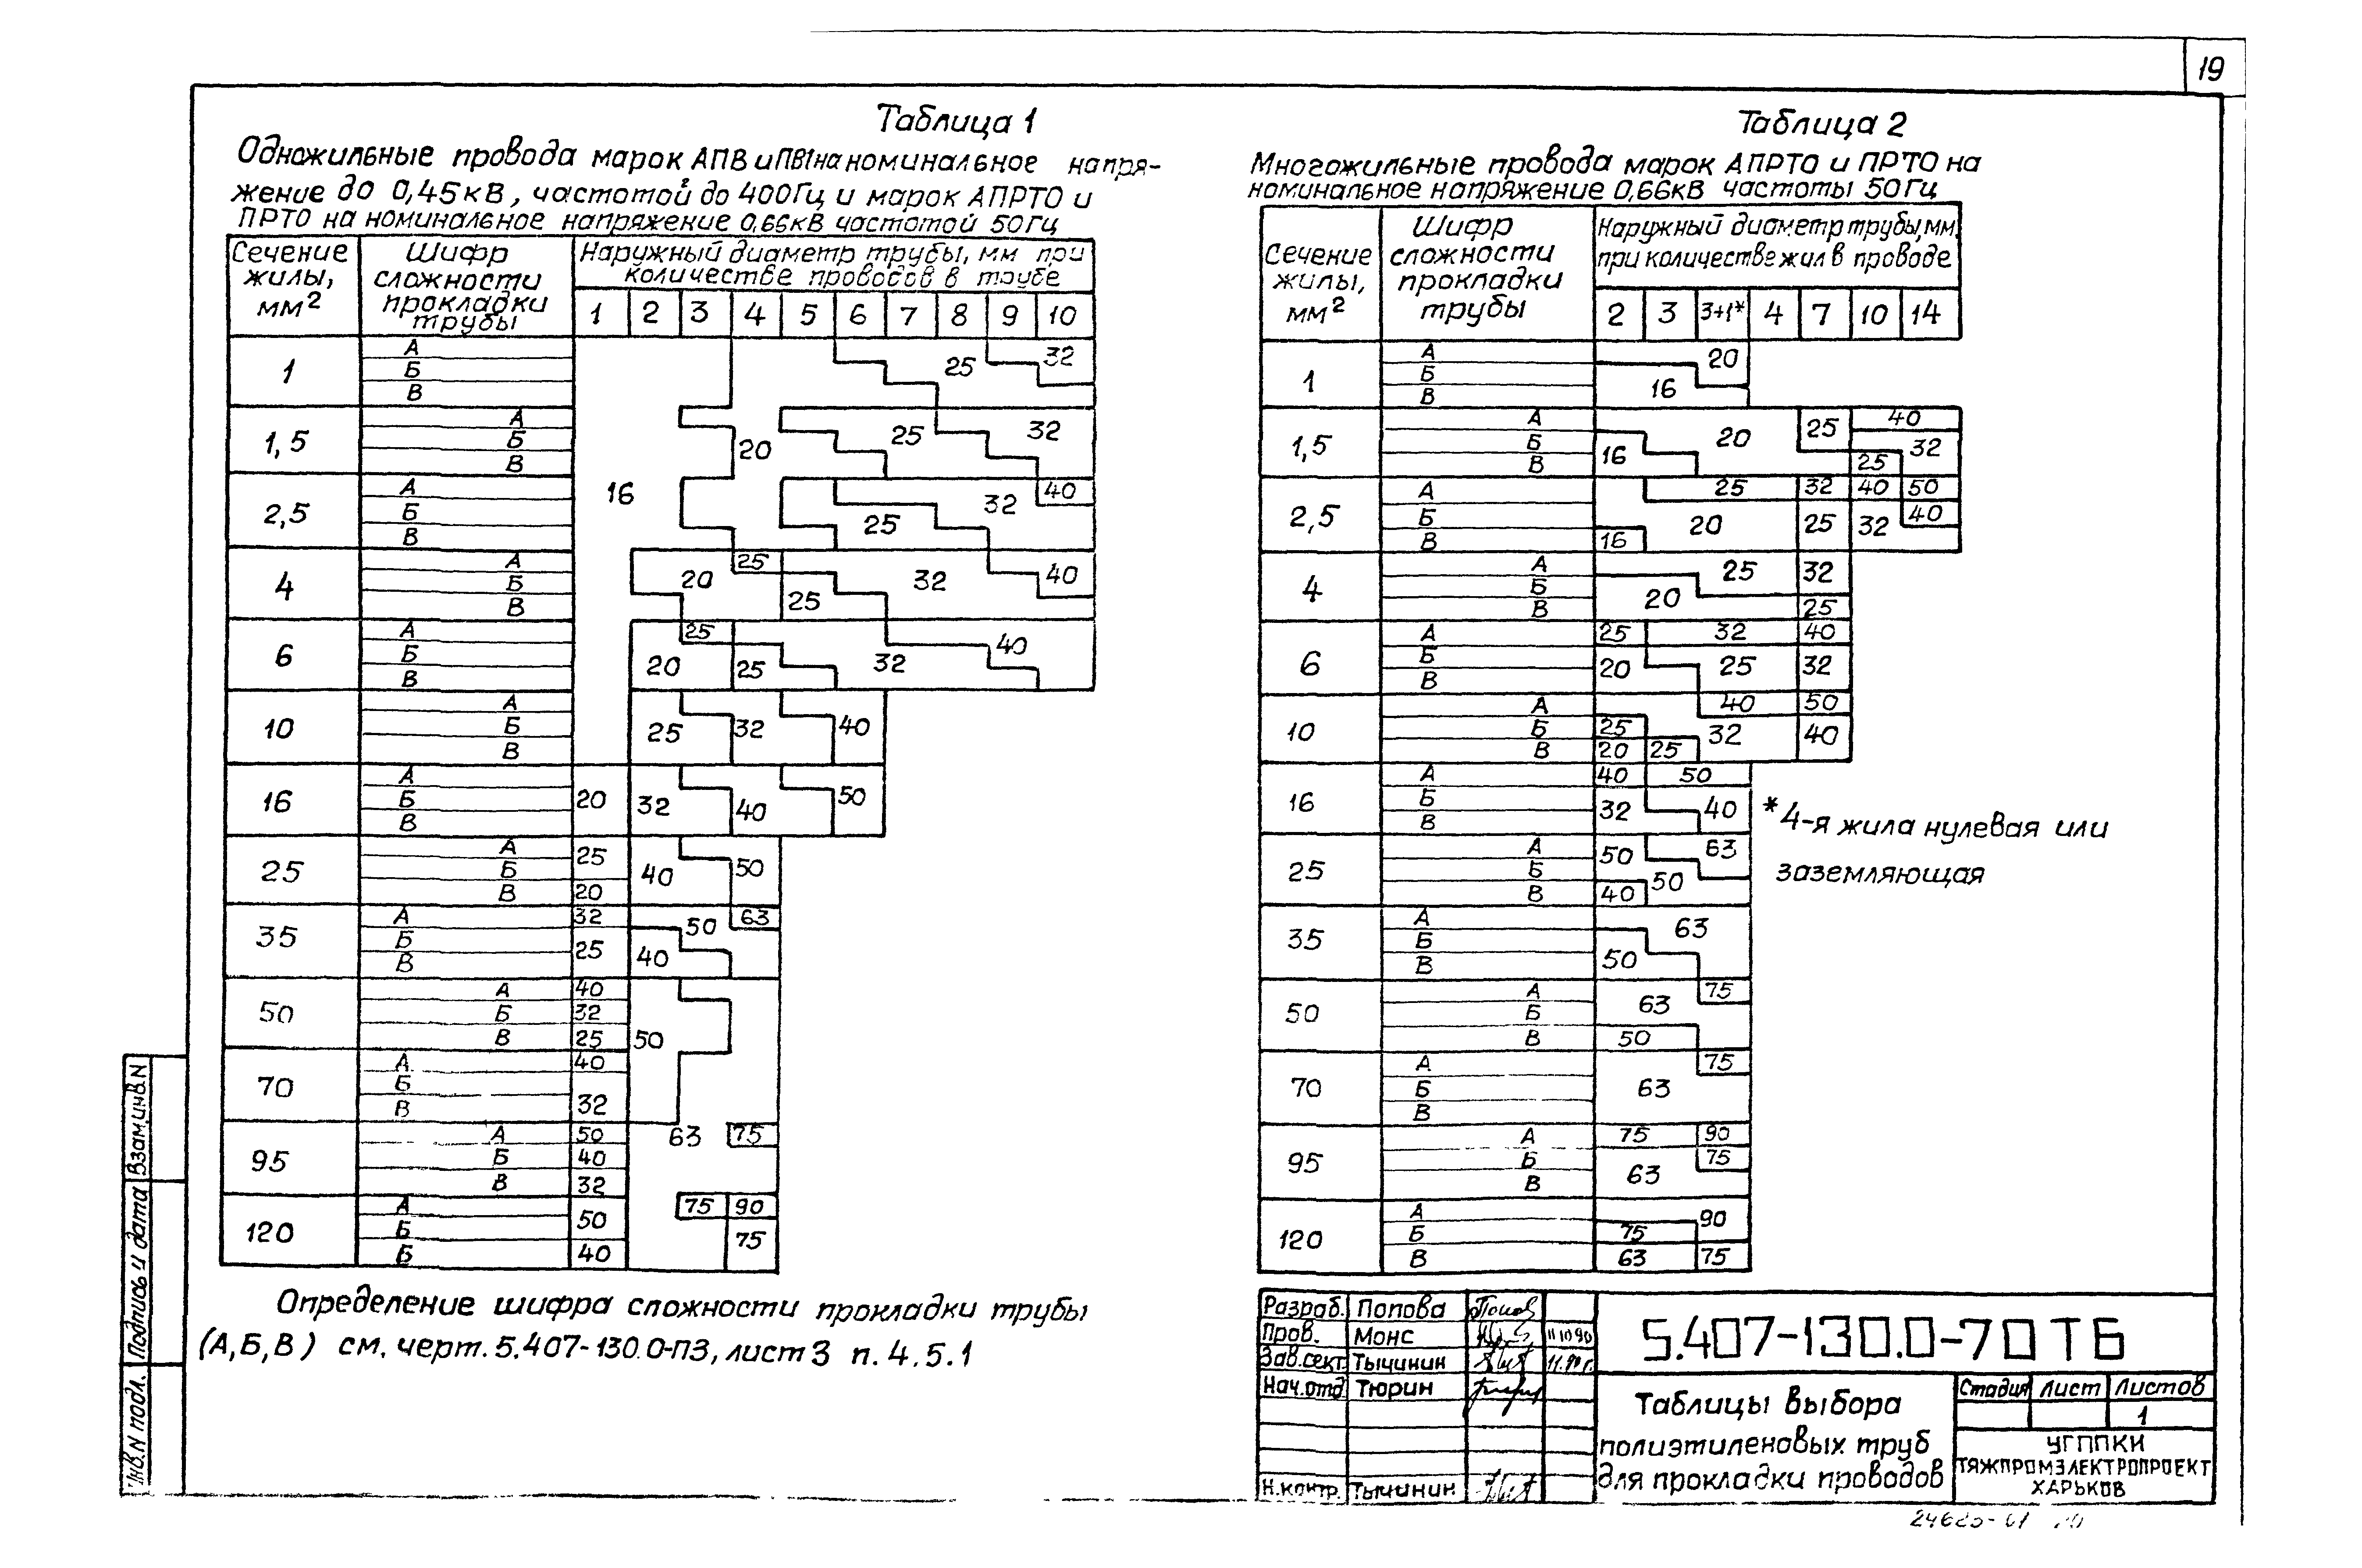 19
Таблица 1
Одножильные провода марок АПВ и ПВ1 на номинальное напря-
жение до 0,45кВ, частотой до 400Гц и марок АПРТО и
ПРТО на номинальное напряжение 0,66кВ частотой 50Гц
Сечение жилы, мм²
Шифр сложности прокладки трубы
Наружный диаметр трубы, мм при
количестве проводов в трубе
1 2 3 4 5 6 7 8 9 10
1
А
Б 25 32
В
1,5
А
Б 20 25 32
В
2,5
А 16 32 40
Б 25
В
4
А 25
Б 20 32 40
В 25
6
А 25
Б 20 25 32 40
В
10
А
Б 25 32 40
В
16
А
Б 20 32 40 50
В
25
А 25
Б 40 50
В 20
35
А 32 50 63
Б 25 40
В
50
А 40
Б 32
В 25 50
70
А 40
Б
В 32
95
А 50 63 75
Б 40
В 32
120
А 75 90
Б 50 75
Б 40
Определение шифра сложности прокладки трубы
(А,Б,В) см. черт. 5.407-130.0-ПЗ, лист 3 п. 4.5.1
Таблица 2
Многожильные провода марок АПРТО и ПРТО на
номинальное напряжение 0,66кВ частоты 50Гц
Сечение жилы, мм²
Шифр сложности прокладки трубы
Наружный диаметр трубы, мм,
при количестве жил в проводе
2 3 3+1* 4 7 10 14
1
А 20
Б
В 16
1,5
А 40
Б 16 20 25 32
В 25
2,5
А 25 32 40 50
Б 20 25 32 40
В 16
4
А 25 32
Б 20
В 25
6
А 25 32 40
Б 20 25 32
В
10
А 40 50
Б 25 32 40
В 20 25
16
А 40 50
Б 32 40
В
25
А 50 63
Б 50
В 40
35
А 63
Б
В 50
50
А 75
Б 63
В 50
70
А 75
Б 63
В
95
А 75 90
Б 63 75
В
120
А 90
Б 75
В 63 75
* 4-я жила нулевая или
заземляющая
Разраб. Попова
Пров. Монс 11 10 90
Зав.сект. Тычинин 11.90г.
Нач.отд Тюрин
Н.контр. Тычинин
5.407-130.0-70ТБ
Таблицы выбора
полиэтиленовых труб
для прокладки проводов
Стадия Лист Листов
1
УГППКИ
ТЯЖПРОМЭЛЕКТРОПРОЕКТ
ХАРЬКОВ
Взам.инв.N
Подпись и дата
Инв.N подл.